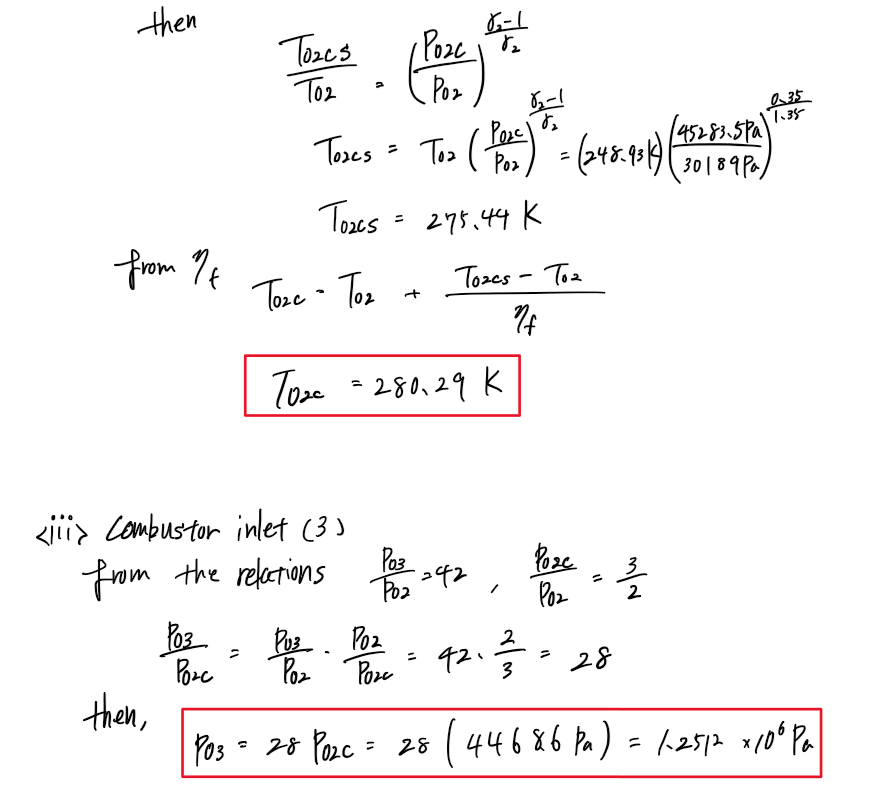 then
T02cs / T02 = (P02c / P02)^((γ2-1)/γ2)
T02cs = T02 (P02c / P02)^((γ2-1)/γ2) = (248.93K)(45283.5Pa / 30189Pa)^(0.35/1.35)
T02cs = 275.44 K
from ηf
T02c = T02 + (T02cs - T02) / ηf
T02c = 280.29 K
<iii> Combustor inlet (3)
from the relations P03 / P02 = 42 , P02c / P02 = 3 / 2
P03 / P02c = P03 / P02 · P02 / P02c = 42 · 2 / 3 = 28
then,
P03 = 28 P02c = 28 (44686 Pa) = 1.2512 ×10^6 Pa